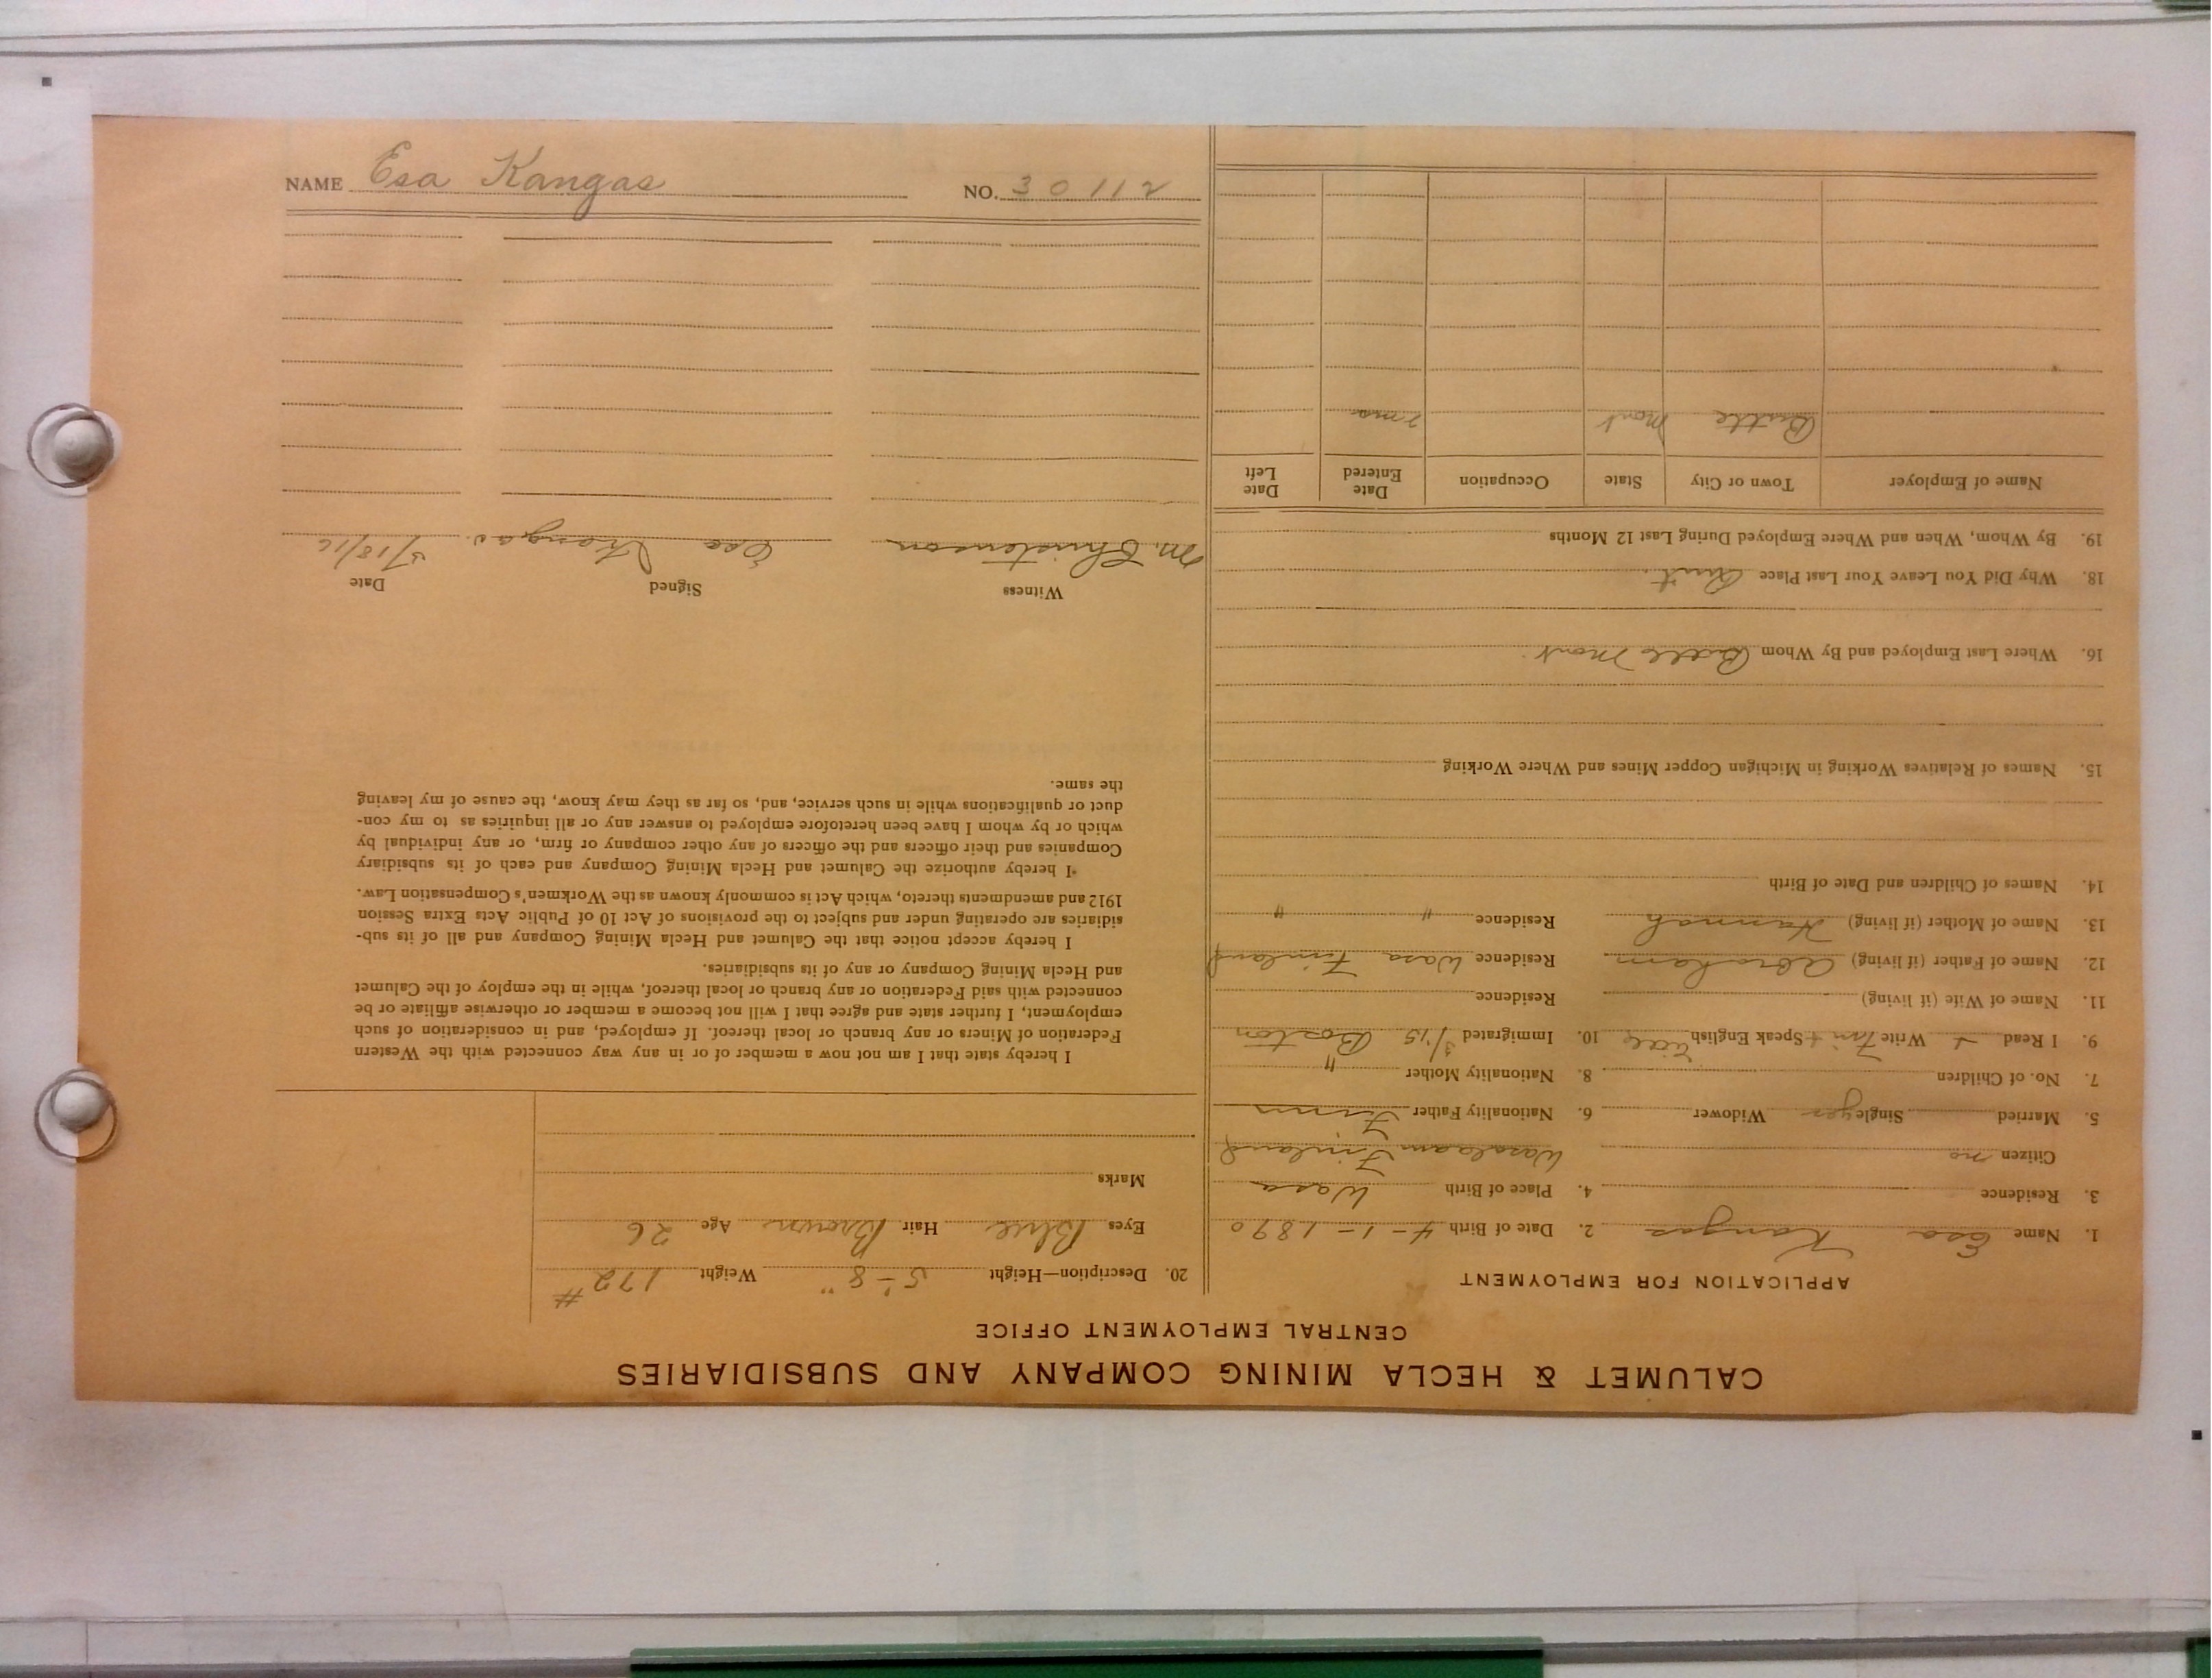 NAME Esa Kangas NO. 30112
CALUMET & HECLA MINING COMPANY AND SUBSIDIARIES
CENTRAL EMPLOYMENT OFFICE
APPLICATION FOR EMPLOYMENT
1. Name Esa Kangas 2. Date of Birth 4-1-1890
3. Residence 4. Place of Birth Wasa
Citizen no Wasalaam Finland
5. Married Single yes Widower 6. Nationality Father Finn
7. No. of Children 8. Nationality Mother "
9. I Read + Write Finn + Speak English 10. Immigrated 3/15 Boston
11. Name of Wife (if living) Residence
12. Name of Father (if living) Abraham Residence Wasa Finland
13. Name of Mother (if living) Hannah Residence " "
14. Names of Children and Date of Birth
15. Names of Relatives Working in Michigan Copper Mines and Where Working
16. Where Last Employed and By Whom Butte Mont
18. Why Did You Leave Your Last Place Quit.
19. By Whom, When and Where Employed During Last 12 Months
Name of Employer Town or City State Occupation Date Entered Date Left
Butte Mont mo
20. Description—Height 5'-8" Weight 172#
Eyes Blue Hair Brown Age 26
Marks
I hereby state that I am not now a member of or in any way connected with the Western
Federation of Miners or any branch or local thereof. If employed, and in consideration of such
employment, I further state and agree that I will not become a member or otherwise affiliate or be
connected with said Federation or any branch or local thereof, while in the employ of the Calumet
and Hecla Mining Company or any of its subsidiaries.
I hereby accept notice that the Calumet and Hecla Mining Company and all of its sub-
sidiaries are operating under and subject to the provisions of Act 10 of Public Acts Extra Session
1912 and amendments thereto, which Act is commonly known as the Workmen's Compensation Law.
I hereby authorize the Calumet and Hecla Mining Company and each of its subsidiary
Companies and their officers and the officers of any other company or firm, or any individual by
which or by whom I have been heretofore employed to answer any or all inquiries as to my con-
duct or qualifications while in such service, and, so far as they may know, the cause of my leaving
the same.
Witness Signed Date
M. Christenson Esa Kangas. 5/18/16